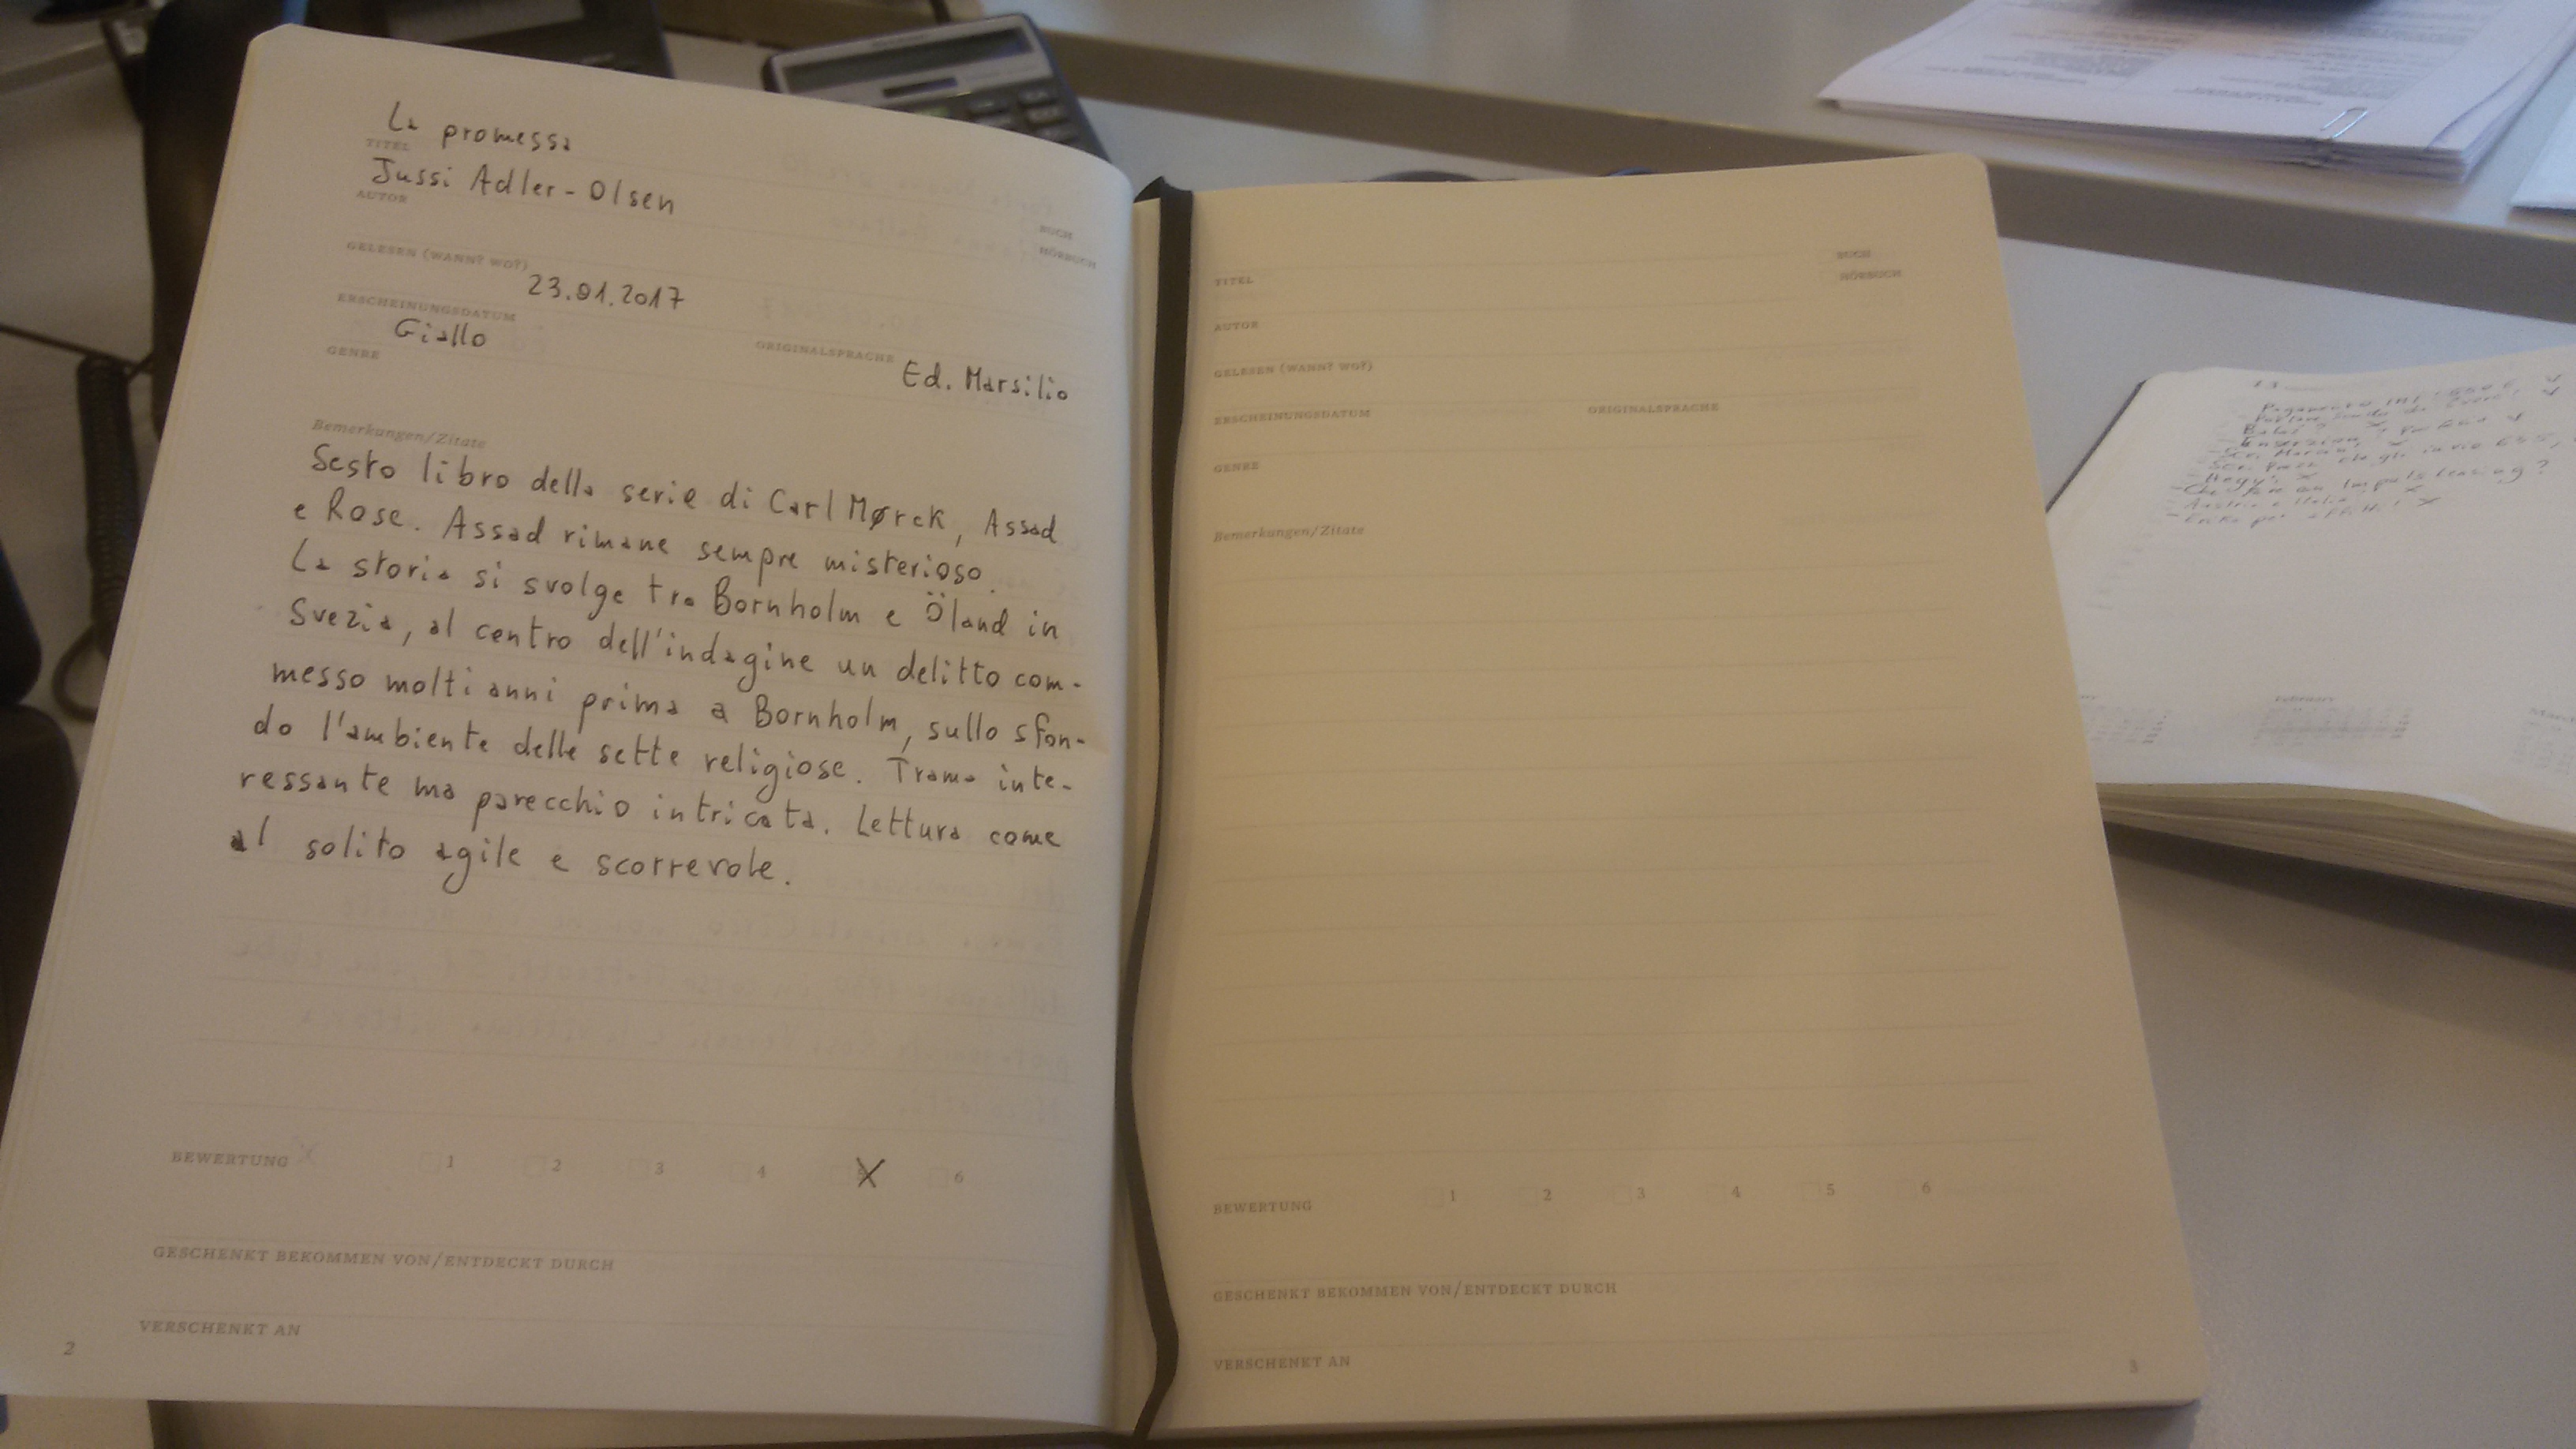 La promessa
TITEL
Jussi Adler-Olsen
AUTOR
BUCH
HÖRBUCH
GELESEN (WANN? WO?)
23.01.2017
ERSCHEINUNGSDATUM
Giallo
ORIGINALSPRACHE
GENRE
Ed. Marsilio
Bemerkungen/Zitate
Sesto libro della serie di Carl Mørck, Assad
e Rose. Assad rimane sempre misterioso.
La storia si svolge tra Bornholm e Öland in
Svezia, al centro dell'indagine un delitto com-
messo molti anni prima a Bornholm, sullo sfon-
do l'ambiente delle sette religiose. Trama inte-
ressante ma parecchio intricata. Lettura come
al solito agile e scorrevole.
BEWERTUNG 1 2 3 4 5 6
GESCHENKT BEKOMMEN VON/ENTDECKT DURCH
VERSCHENKT AN
2
TITEL
BUCH
HÖRBUCH
AUTOR
GELESEN (WANN? WO?)
ERSCHEINUNGSDATUM
ORIGINALSPRACHE
GENRE
Bemerkungen/Zitate
BEWERTUNG 1 2 3 4 5 6
GESCHENKT BEKOMMEN VON/ENTDECKT DURCH
VERSCHENKT AN
3
13
Februar